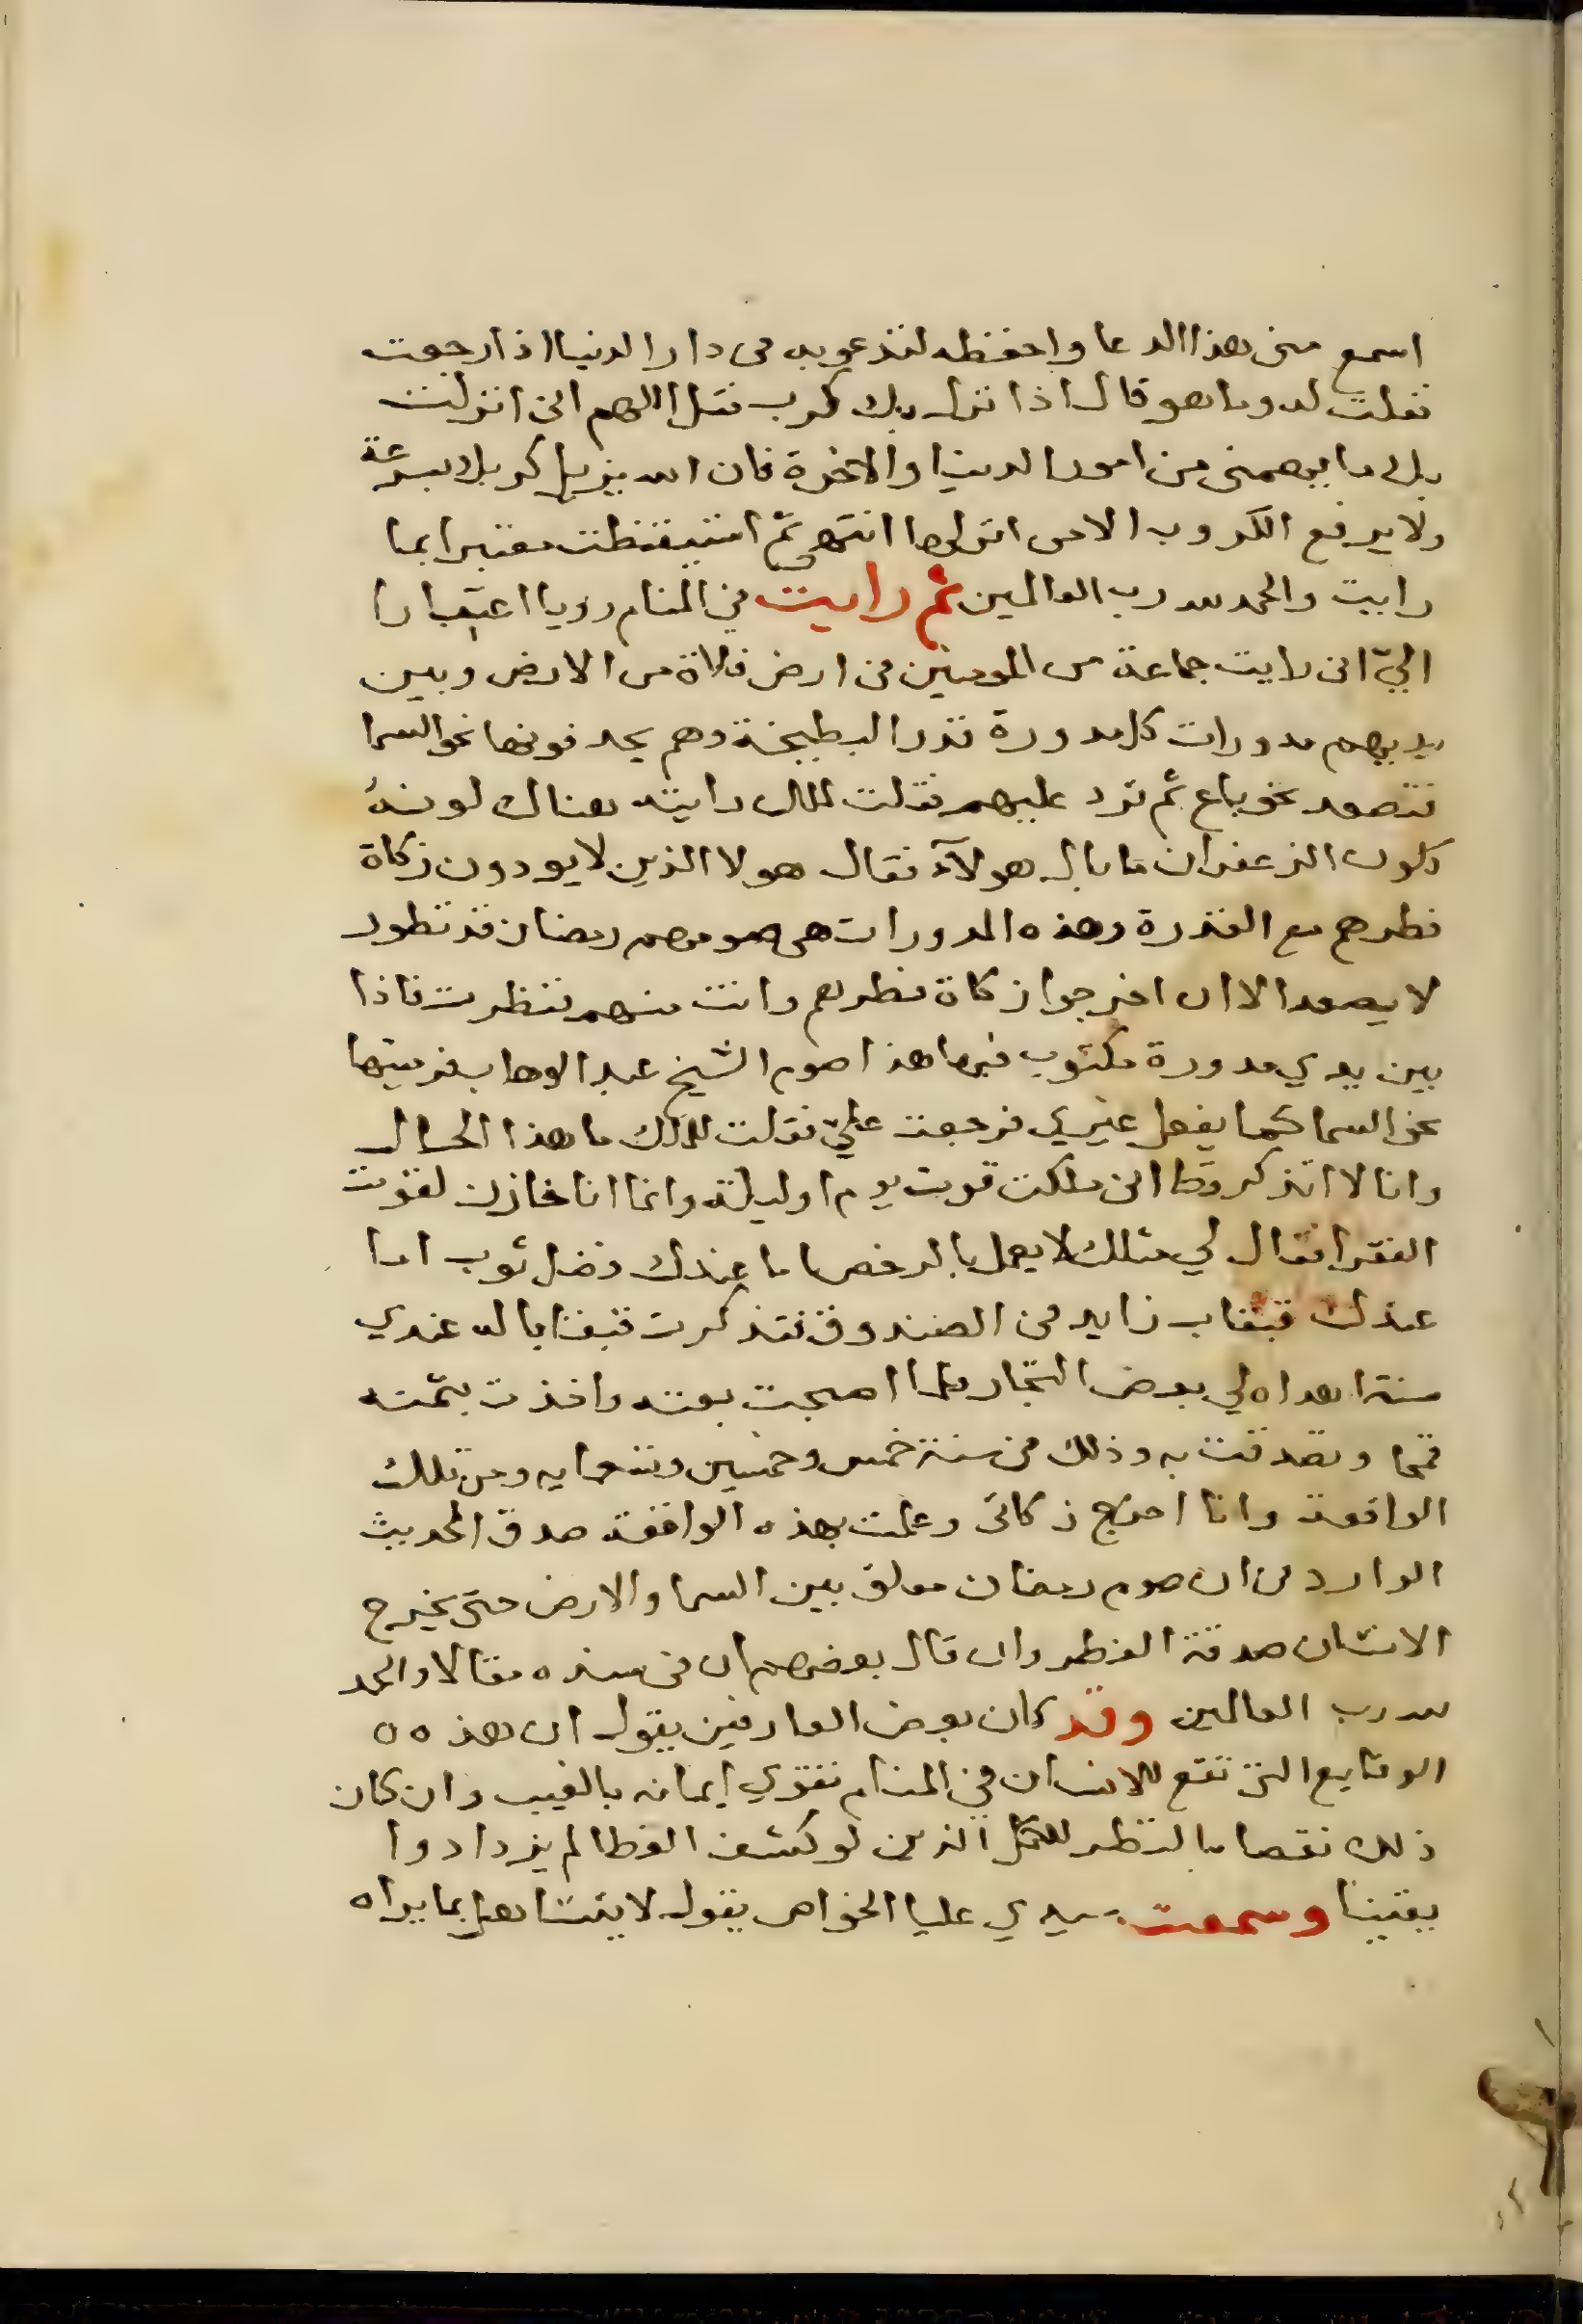 اسمع مني هذا الدعا واحفظه لتدعو به في دار الدنيا اذا رجعت
فقلت له وما هو قال اذا نزل بك كرب فقل اللهم اني انزلت
بك ما يهمني من امور الدنيا والاخرة فان الله يزيل كربك بسرعة
ولا يرفع الكروب الا من انزلها انتهى ثم استيقظت معتبرا بما
رايت والحمد لله رب العالمين ثم رايت في المنام رويا اعتبارا
اليّ اني رايت جماعة من المومنين في ارض فلاة من الارض وبين
يديهم مدورات كل مدورة قدر البطيخة وهم يحدفونها نحو السما
فتصعد نحو باع ثم ترد عليهم فقلت لملك رايته هناك لونهُ
كلون الزعفران ما بال هولآء فقال هولا الذين لا يودون زكاة
فطرهم مع القدرة وهذه المدورات هي صومهم رمضان قد تطور
لا يصعد الا ان اخرجوا زكاة فطرهم وانت منهم فنظرت فاذا
بين يدي مدورة مكتوب فيها هذا صوم الشيخ عبد الوهاب فرميتها
نحو السما كما يفعل غيري فرجعت عليّ فقلت للملك ما هذا الحال
وانا لا اتذكر قط اني ملكت قوت يوم وليلة وانما انا خازن لقوت
الفقرا فقال لي مثلك لا يعمل بالرخص اما عندك فضل ثوب اما
عندك قبقاب زايد في الصندوق فتذكرت قبقابا له عندي
سنة اهداه لي بعض التجار فلما اصبحت بعته واخذت بثمنه
قمحا وتصدقت به وذلك في سنة خمس وخمسين وتسعمايه ومن تلك
الواقعة وانا اخرج زكاتي وعلمت بهذه الواقعة صدق الحديث
الوارد من ان صوم رمضان معلق بين السما والارض حتى يخرج
الانسان صدقة الفطر وان قال بعضهم ان في سنده مقالا والحمد
لله رب العالمين وقد كان بعض العارفين يقول ان هذه ه
الوقايع التي تقع للانسان في المنام تقوي ايمانه بالغيب وان كان
ذلك نقصا بالنظر للكمّل الذين لو كشف الغطا لم يزدادوا
يقينا وسمعت سيدي عليا الخواص يقول لا يتساهل بما يراه